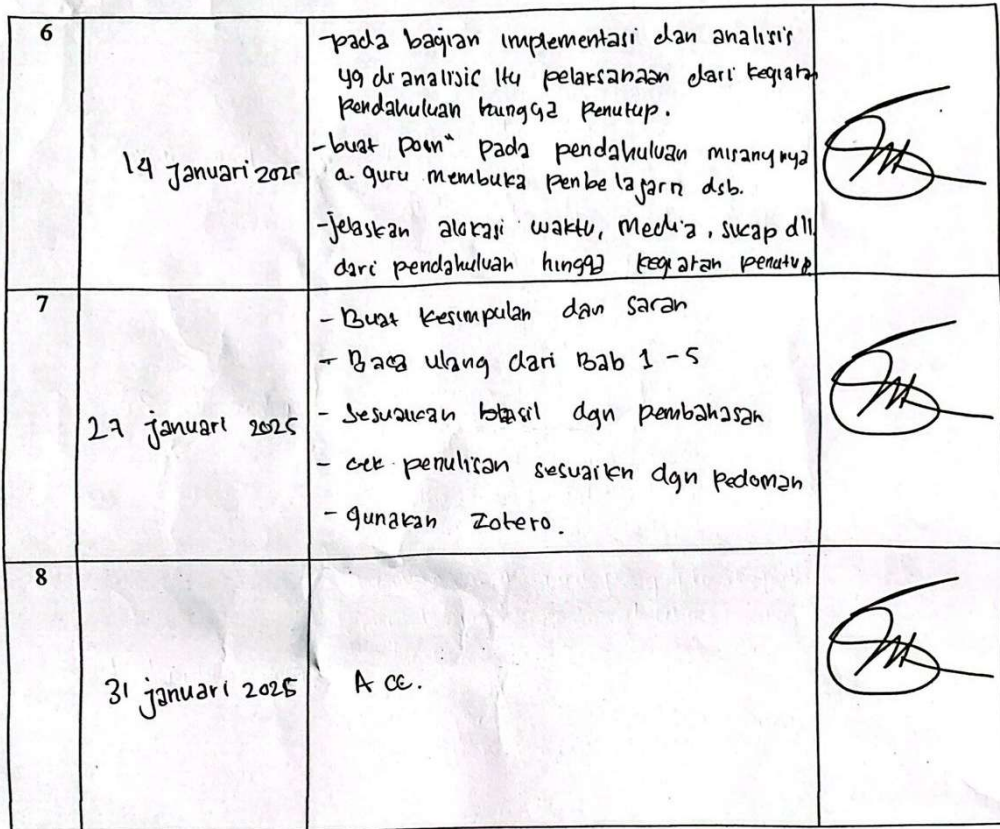 6
-pada bagian implementasi dan analisis
yg di analisic itu pelaksanaan dari kegiatan
pendahuluan hingga penutup.
14 Januari 2025
-buat poin" pada pendahuluan misanynya
a. guru membuka penbelajarn dsb.
-jelaskan alokasi waktu, Media, sikap dll
dari pendahuluan hingga kegiatan penutup
7
- Buat kesimpulan dan saran
- Baca ulang dari Bab 1 - 5
27 januari 2025
- Sesuaikan hasil dgn pembahasan
- cek penulisan sesuaikn dgn pedoman
- gunakan Zotero.
8
31 januari 2025
Acc.